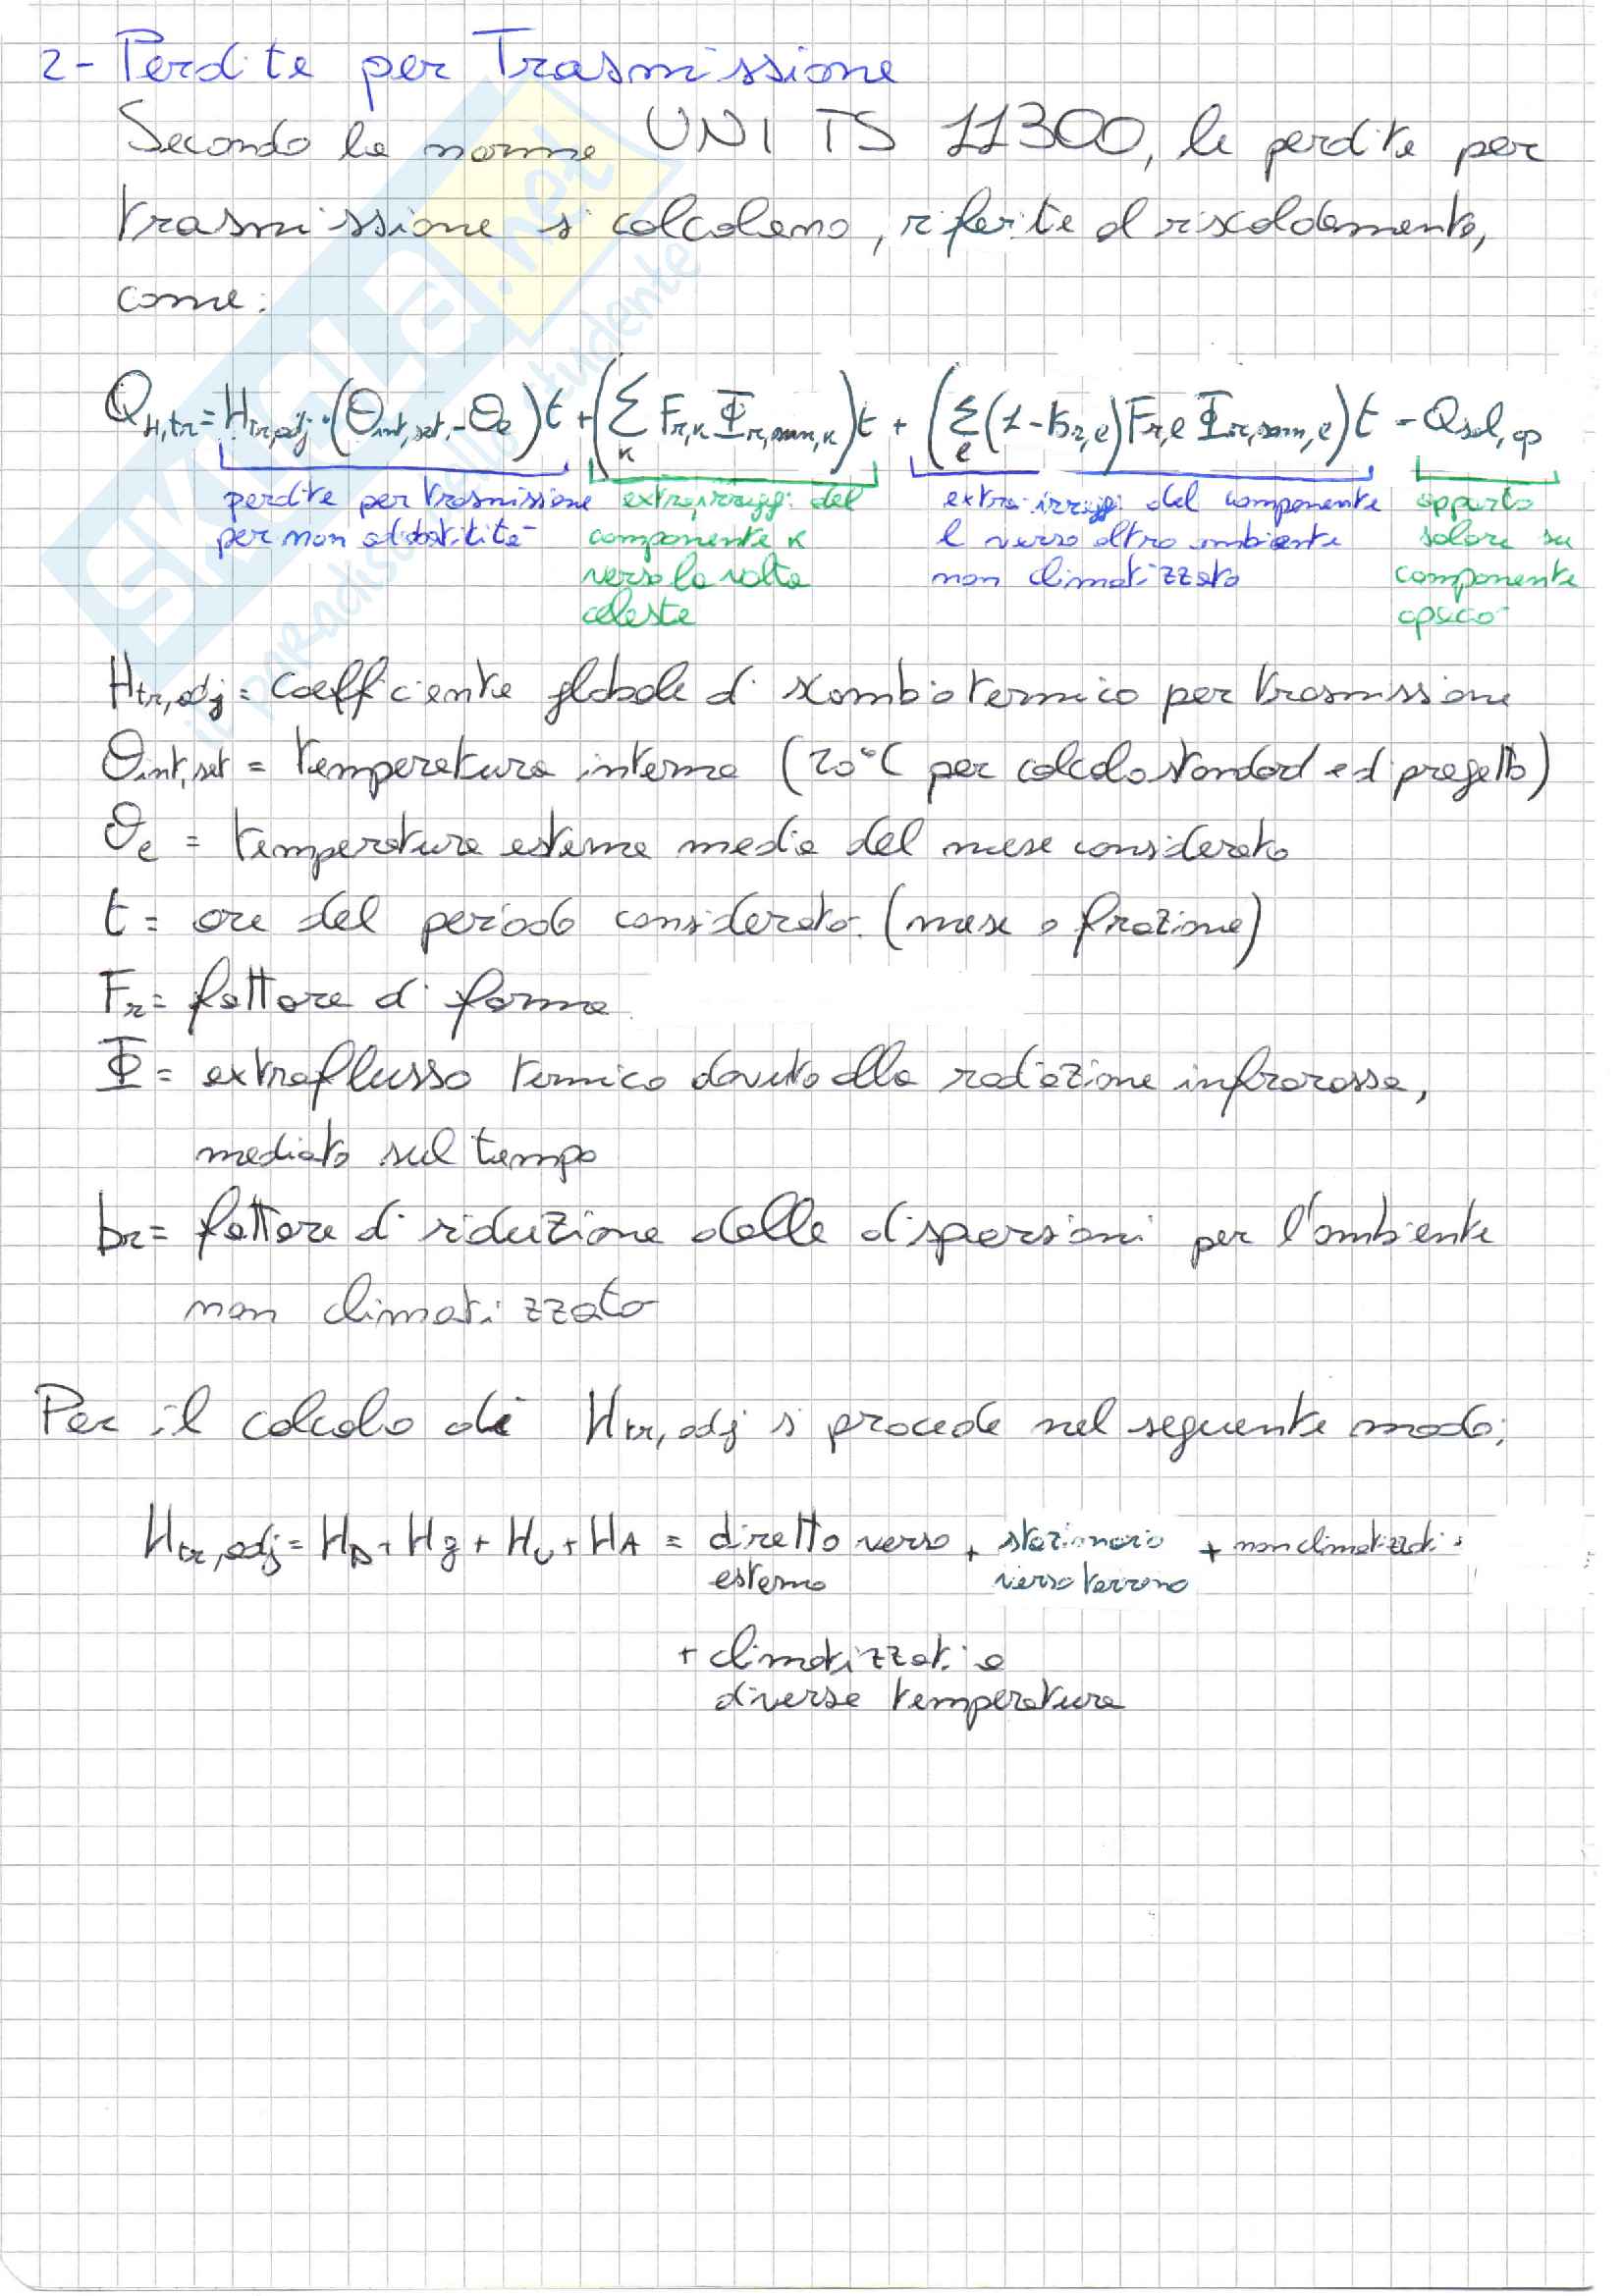 2- Perdite per Trasmissione
Secondo la norma UNI TS 11300, le perdite per
trasmissione si calcolano, riferite al riscaldamento,
come:
Q_H,tr = H_tr,adj · (θ_int,set - θ_e) t + (Σ_k F_r,k Φ_r,mn,k) t + (Σ_l (1 - b_r,l) F_r,l Φ_r,mn,l) t - Q_sol,op
perdite per trasmissione extrairragg. del extra irragg. del componente apporto
per non adiabaticità componente k l verso altro ambiente solare su
verso la volta non climatizzato componente
celeste opaco
H_tr,adj = coefficiente globale di scambio termico per trasmissione
θ_int,set = temperatura interna (20°C per calcolo standard e di progetto)
θ_e = temperatura esterna media del mese considerato
t = ore del periodo considerato. (mese o frazione)
F_r = fattore di forma
Φ = extraflusso termico dovuto alla radiazione infrarossa,
mediato sul tempo
b_r = fattore di riduzione delle dispersioni per l'ambiente
non climatizzato
Per il calcolo di H_tr,adj si procede nel seguente modo:
H_tr,adj = H_D + H_g + H_U + H_A = diretto verso + stazionario + non climatizzati +
esterno verso terreno
+ climatizzati a
diverse temperature
SKUOLA.net
il paradiso dello studente